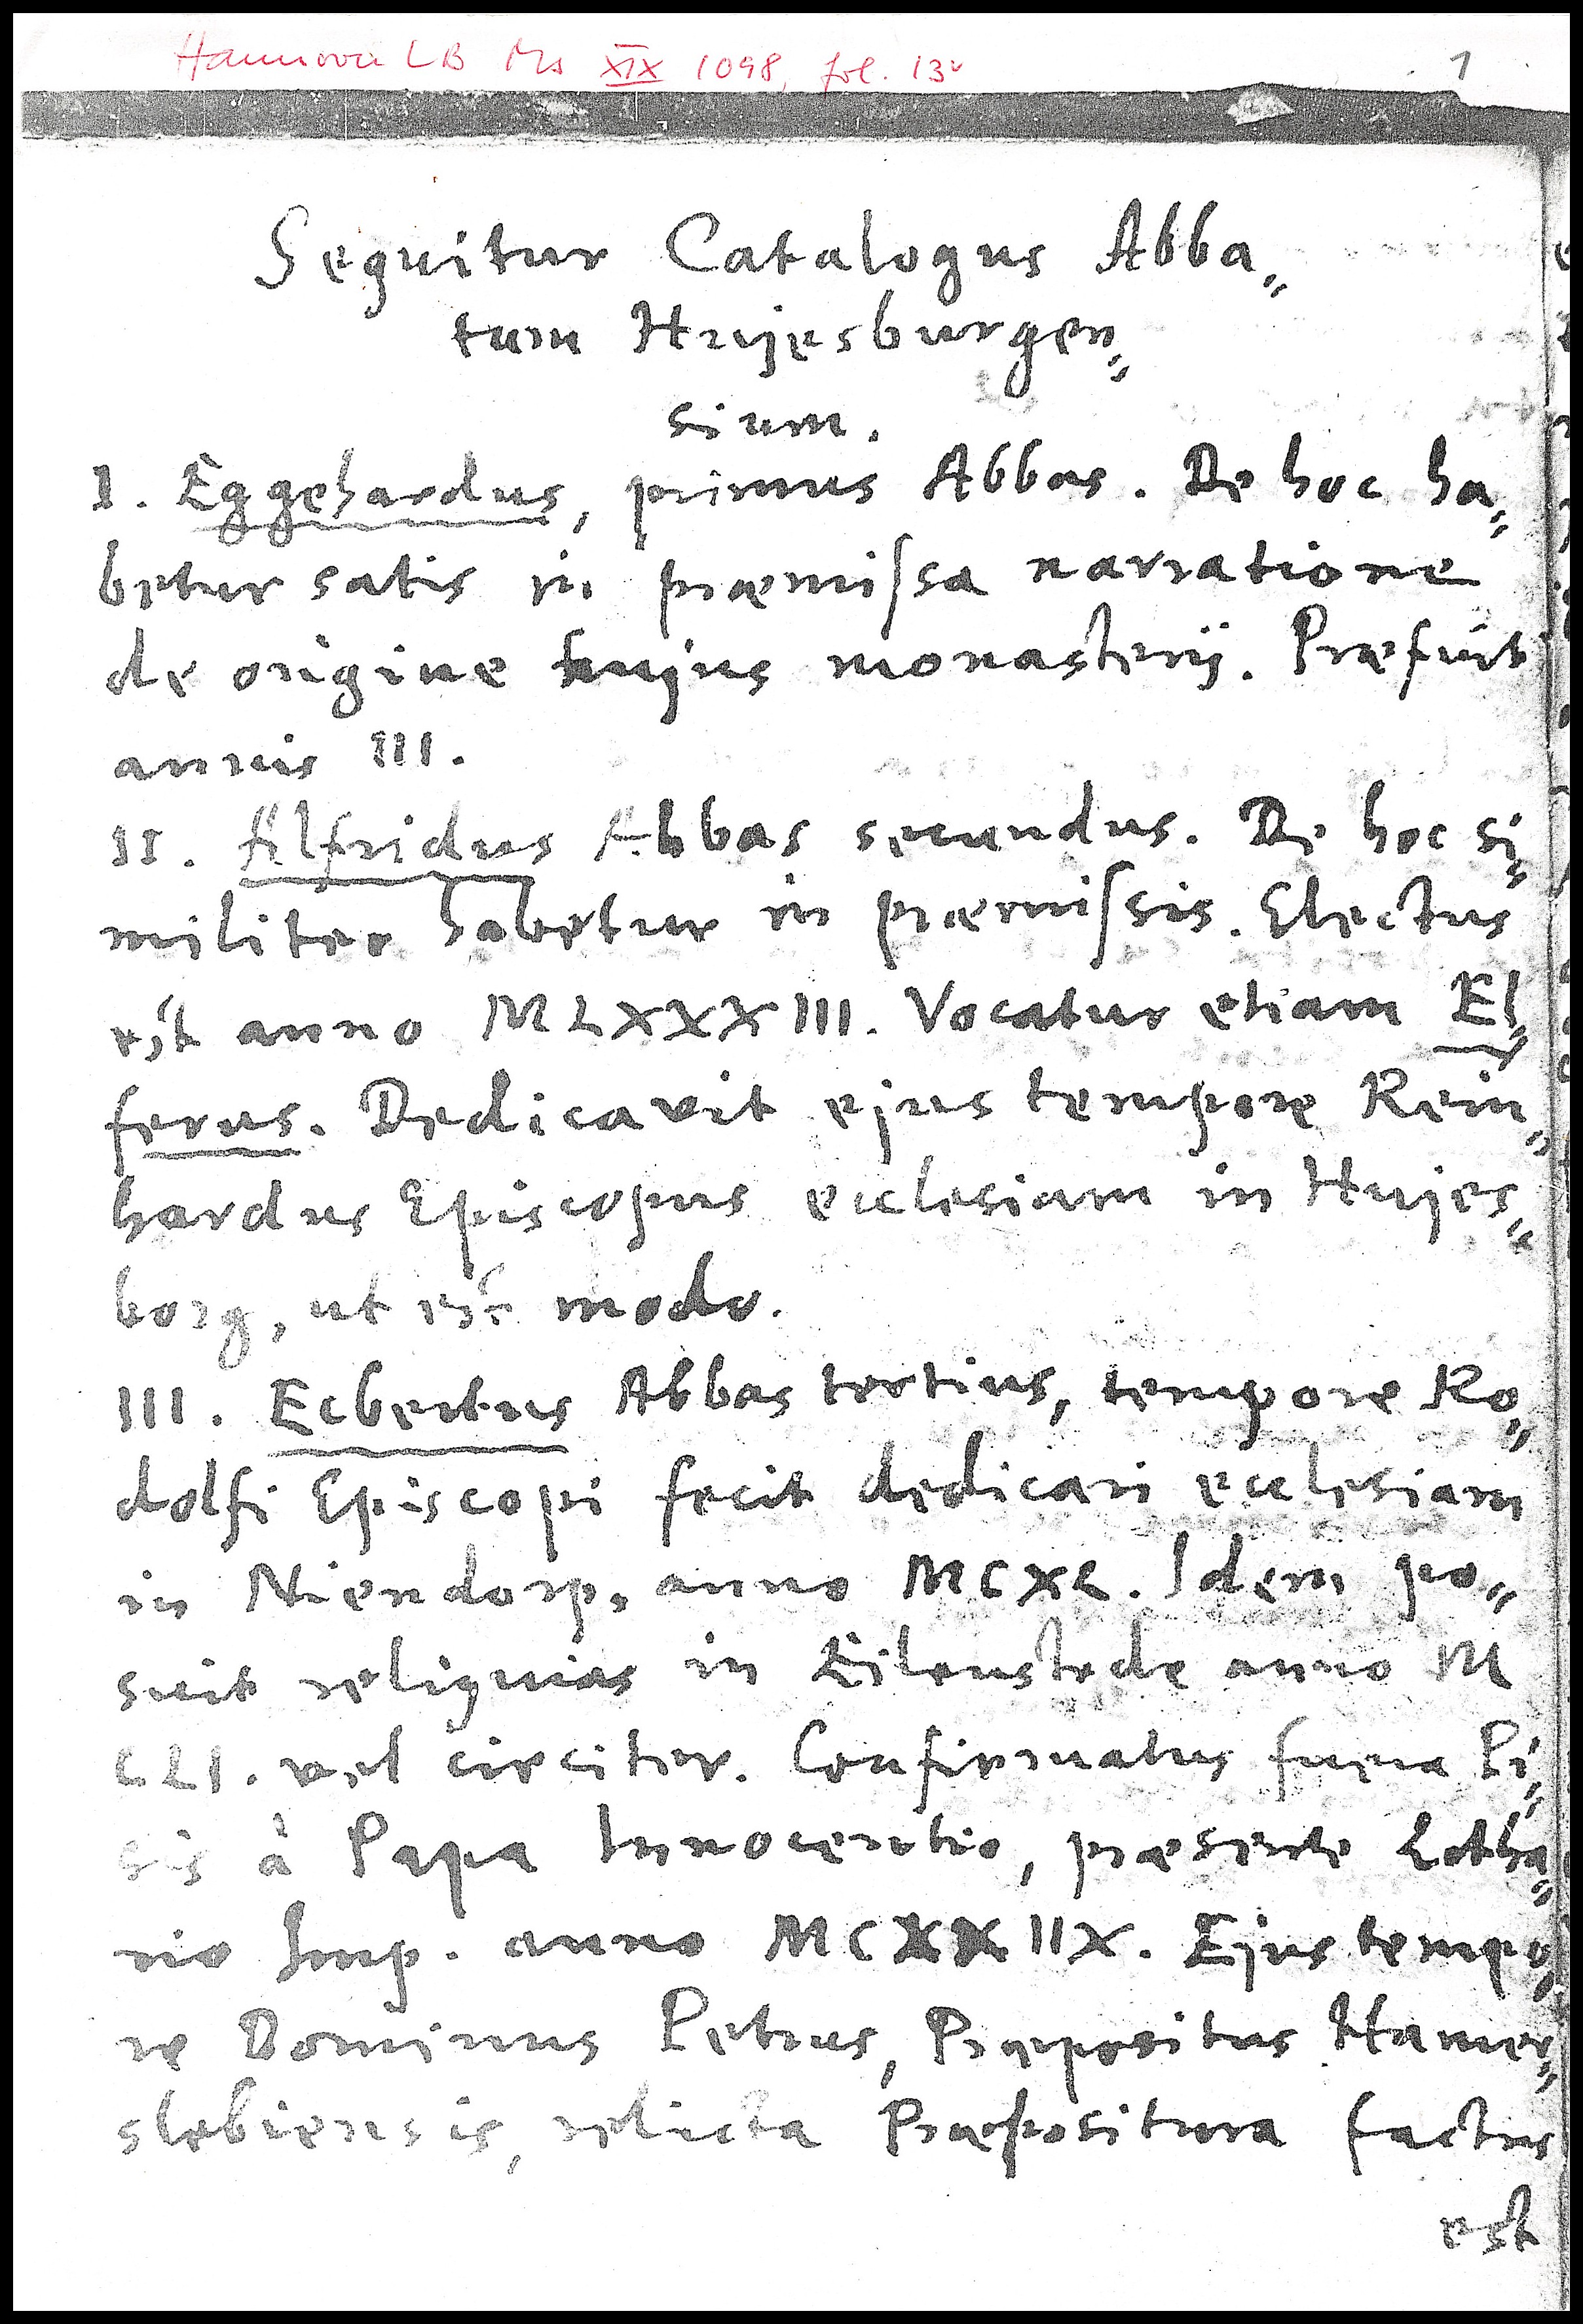 Hannover LB Ms XIX 1098, fol. 13v
1
Sequitur Catalogus Abba„
tum Hujesburgen„
sium.
I. Eggehardus, primus Abbas. De hoc ha„
betur satis in præmissa narratione
de origine hujus monasterij. Præfuit
annis III.
II. Alfridus Abbas secundus. De hoc si„
militer habetur in præmissis. Electus
est anno MLXXXIII. Vocatur etiam El„
ferus. Dedicavit ejus tempore Rein„
hardus Episcopus ecclesiam in Hujes„
borg, ut est modo.
III. Ecbertus Abbas tertius, tempore Ro„
dolfi Episcopi fecit dedicari ecclesiam
in Niendorp, anno MCXL. Idem po„
suit reliquias in Eilenstede anno M
CLI. vel circiter. Confirmatus fuera Pi„
sis à Papa Innocentio, præsente Lotha„
rio Imp. anno MCXXIIX. Ejus tempo„
re Dominus Petrus, Præpositus Hamer„
slebiensis, relicta Præpositura factus
est